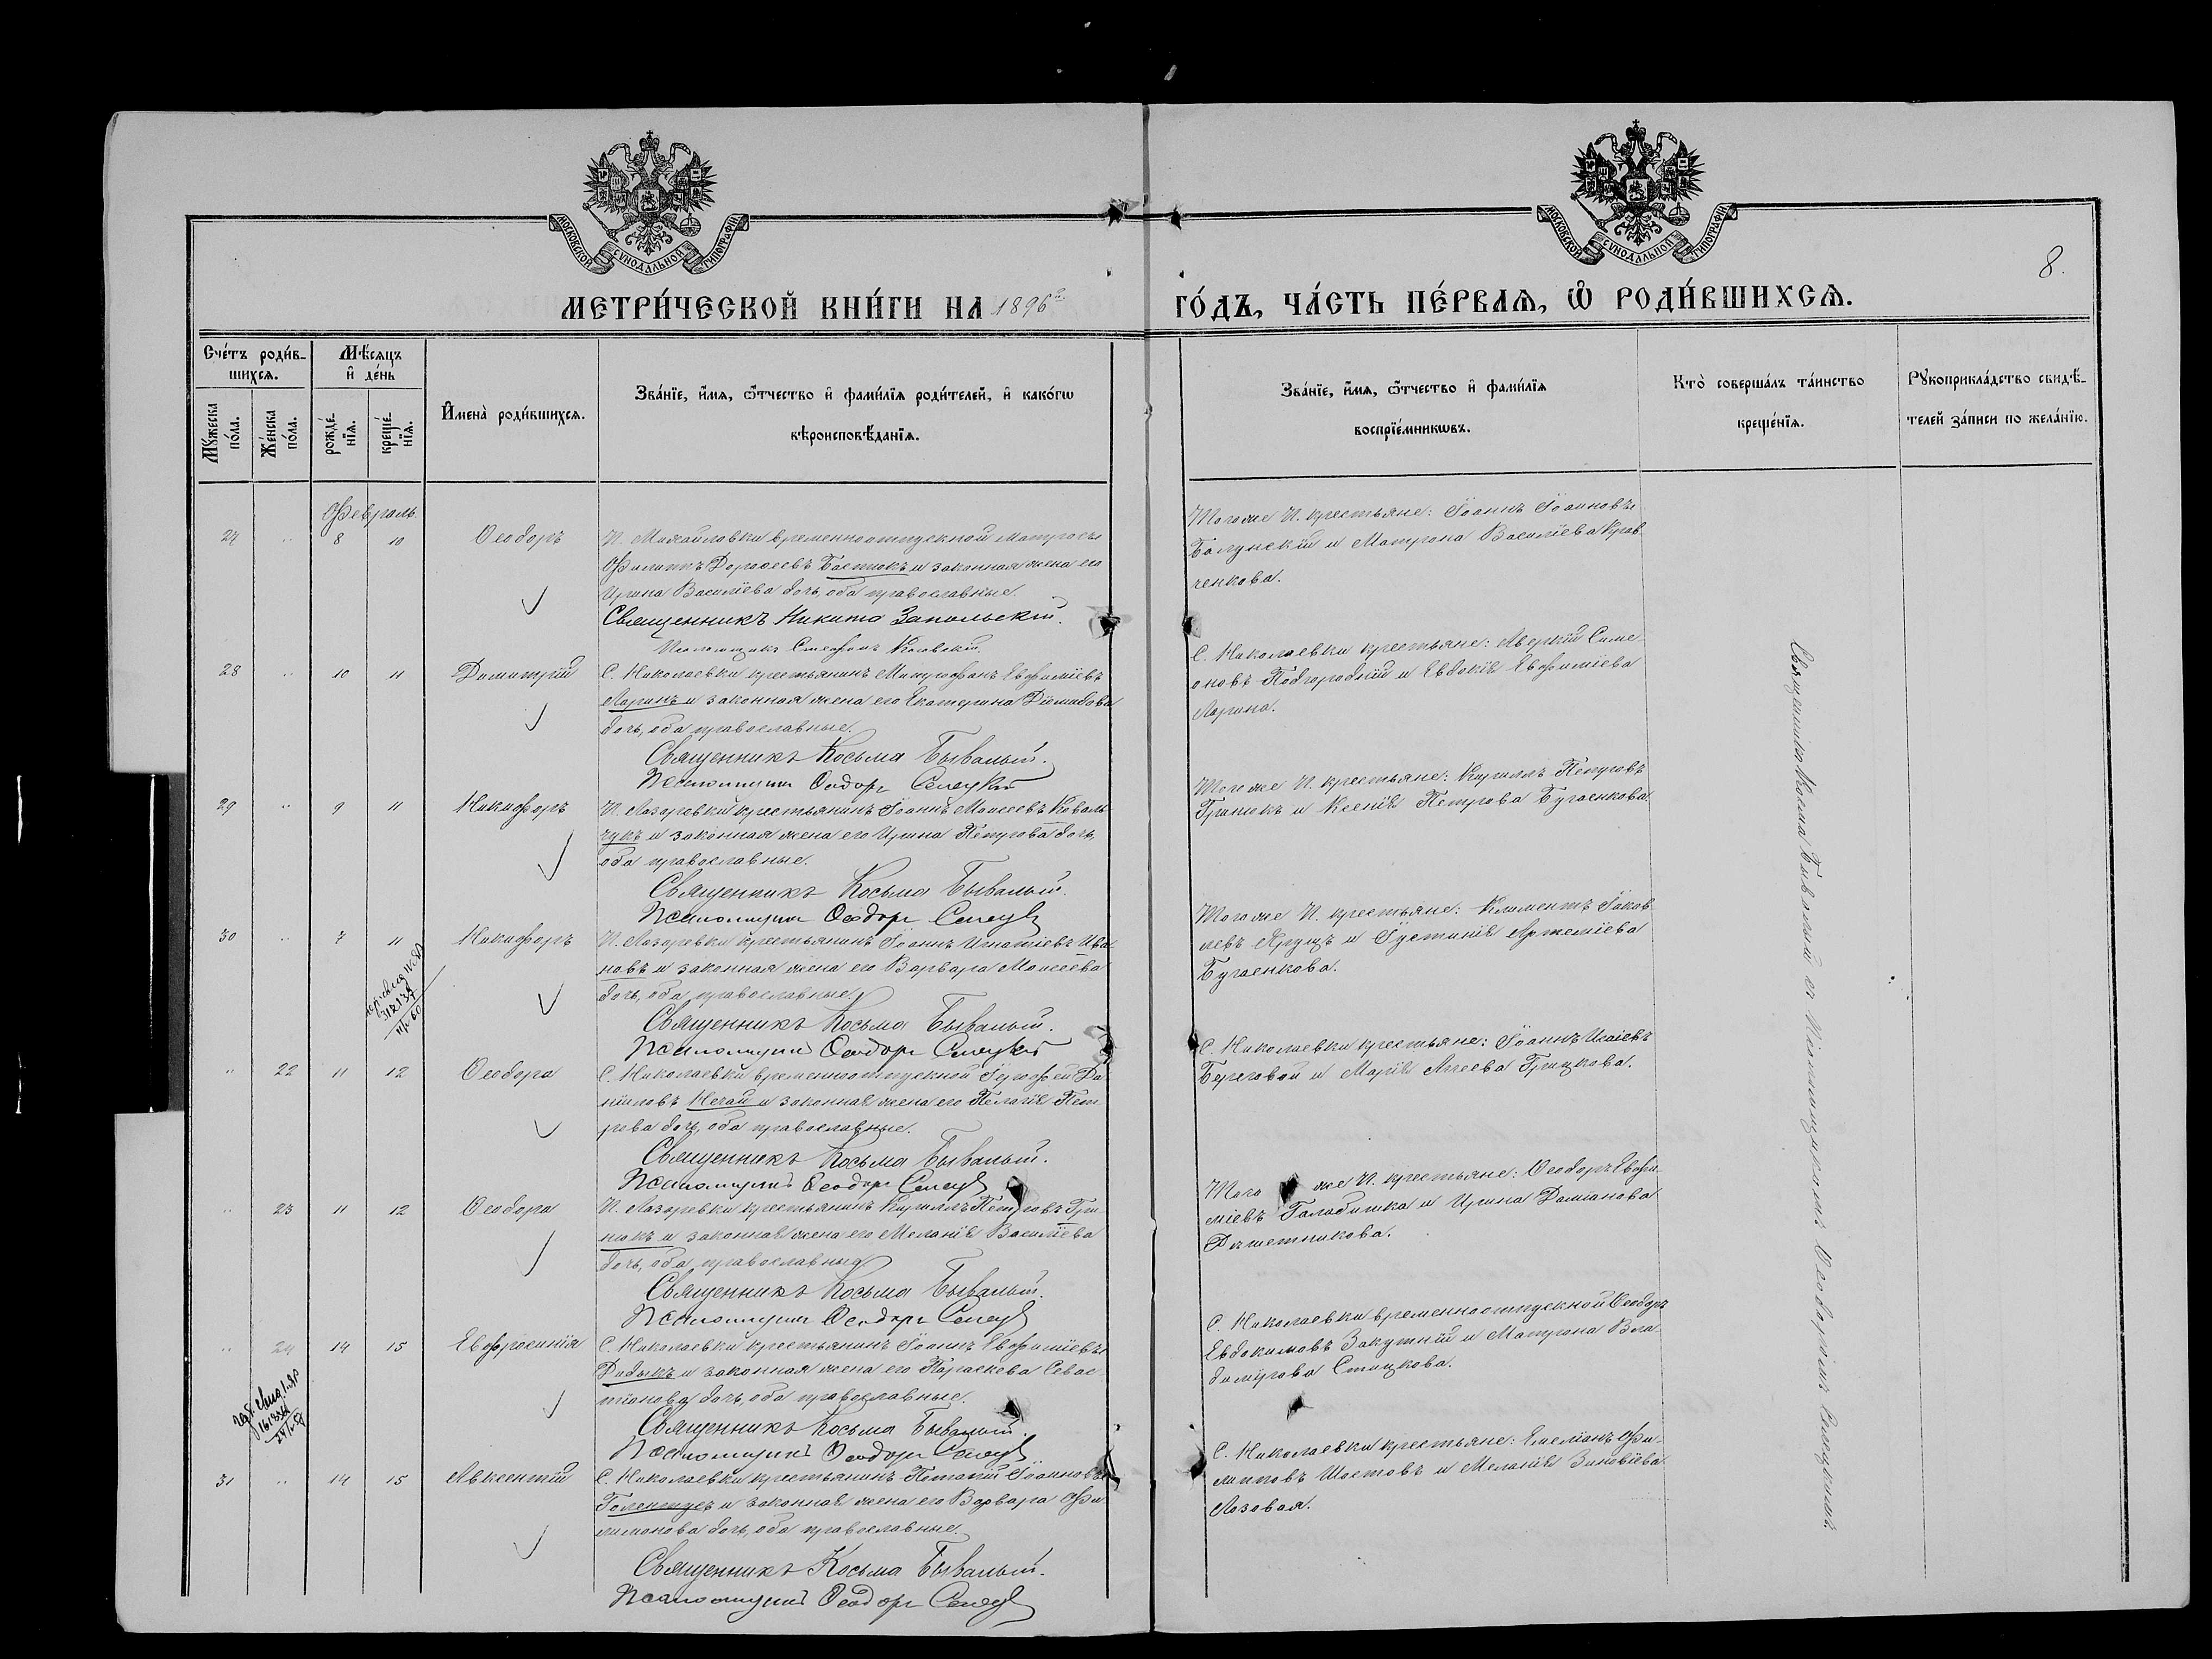 МОСКОВСКОЙ СУНОДАЛЬНОЙ ТИПОГРАФІИ
МОСКОВСКОЙ СУНОДАЛЬНОЙ ТИПОГРАФІИ
8.
МЕТРИ́ЧЕСКОЙ КНИ́ГИ НА 1896 г.
ГО́ДЪ, ЧА́СТЬ ПЕ́РВАѦ, Ѡ РОДИ́ВШИХСѦ.
Сче́тъ роди́в-
шихсѧ.
Мѣ́сѧцъ
и҆ де́нь
Мꙋ́жеска
по́ла.
Же́нска
по́ла.
рожде́-
нїѧ.
креще́-
нїѧ.
И҆мена̀ роди́вшихсѧ.
Зва́нїе, и҆́мѧ, ѻ҆́тчество и҆ фами́лїѧ роди́телей, и҆ како́гѡ
вѣроисповѣ́данїѧ.
Зва́нїе, и҆́мѧ, ѻ҆́тчество и҆ фами́лїѧ
воспрїе́мникѡвъ.
Кто̀ соверша́лъ та́инство
креще́нїѧ.
Рꙋкоприкла́дство свидѣ́-
телей за́писи по жела́нїю.
Февраль.
24 " 8 10 Ѳеодоръ
П. Михайловки временноотпускной матросъ
Филиппъ Дороѳеевъ Бастюкъ и законная жена его
Ирина Василіева дочь, оба православные.
Священникъ Никита Запольскій.
Псаломщикъ Стефанъ
Тогоже П. крестьяне: Іоаннъ Іоанновъ
Балунскій и Матрона Василіева Крав-
ченкова.
28 " 10 11 Димитрій
С. Николаевки крестьянинъ Митрофанъ Евфиміевъ
Ларинъ и законная жена его Екатерина Діомидова
дочь, оба православные.
Священникъ Косьма Бывалый.
Псаломщикъ Ѳеодоръ Селецкій
С. Николаевки крестьяне: Аверкій Симе-
оновъ Подгородній и Евдокія Евфиміева
Ларина.
29 " 9 11 Никифоръ
П. Лазоревки крестьянинъ Іоаннъ Моисеевъ Коваль-
чукъ и законная жена его Ирина Петрова дочь,
оба православные.
Священникъ Косьма Бывалый.
Псаломщикъ Ѳеодоръ Селецкій
Тогоже П. крестьяне: Кириллъ Петровъ
Гринюкъ и Ксенія Петрова Бугаенкова.
30 " 7 11 Никифоръ
П. Лазоревки крестьянинъ Іоаннъ Игнатіевъ Ива-
новъ и законная жена его Варвара Моисеева
дочь, оба православные.
Священникъ Косьма Бывалый.
Псаломщикъ Ѳеодоръ Селецкій
Тогоже П. крестьяне: Климентъ Іаков-
левъ Ярущъ и Іустинія Артеміева
Бугаенкова.
" 22 11 12 Ѳеодора
С. Николаевки временноотпускной Іероѳей Да-
ніиловъ Нечай и законная жена его Пелагія Пет-
рова дочь, оба православные.
Священникъ Косьма Бывалый.
Псаломщикъ Ѳеодоръ Селецкій
С. Николаевки крестьяне: Іоаннъ Исаіевъ
Береговой и Марія Аггеева Грицкова.
" 23 11 12 Ѳеодора
П. Лазоревки крестьянинъ Кириллъ Петровъ Гри-
нюкъ и законная жена его Меланія Василіева
дочь, оба православные.
Священникъ Косьма Бывалый.
Псаломщикъ Ѳеодоръ Селецкій
Того же П. крестьяне: Ѳеодоръ Евфи-
міевъ Голобишка и Ирина Даміанова
Решетникова.
" 24 14 15 Евфросинія
С. Николаевки крестьянинъ Іоаннъ Евфиміевъ
Дидыкъ и законная жена его Параскева Севас-
тіанова дочь, оба православные.
Священникъ Косьма Бывалый.
Псаломщикъ Ѳеодоръ Селецкій
С. Николаевки временноотпускной Ѳеодоръ
Евдокимовъ Закутній и Матрона Вла-
димірова Стицкова.
31 " 14 15 Авксентій
С. Николаевки крестьянинъ Потапій Іоанновъ
Голентусъ и законная жена его Варвара Фи-
лимонова дочь, оба православные.
Священникъ Косьма Бывалый.
Псаломщикъ Ѳеодоръ Селецкій
С. Николаевки крестьяне: Емеліанъ Фи-
липповъ Шостовъ и Меланія Зиновіева
Лозовая.
Священникъ Косьма Бывалый съ Псаломщикомъ Ѳеодоромъ Селецкимъ.